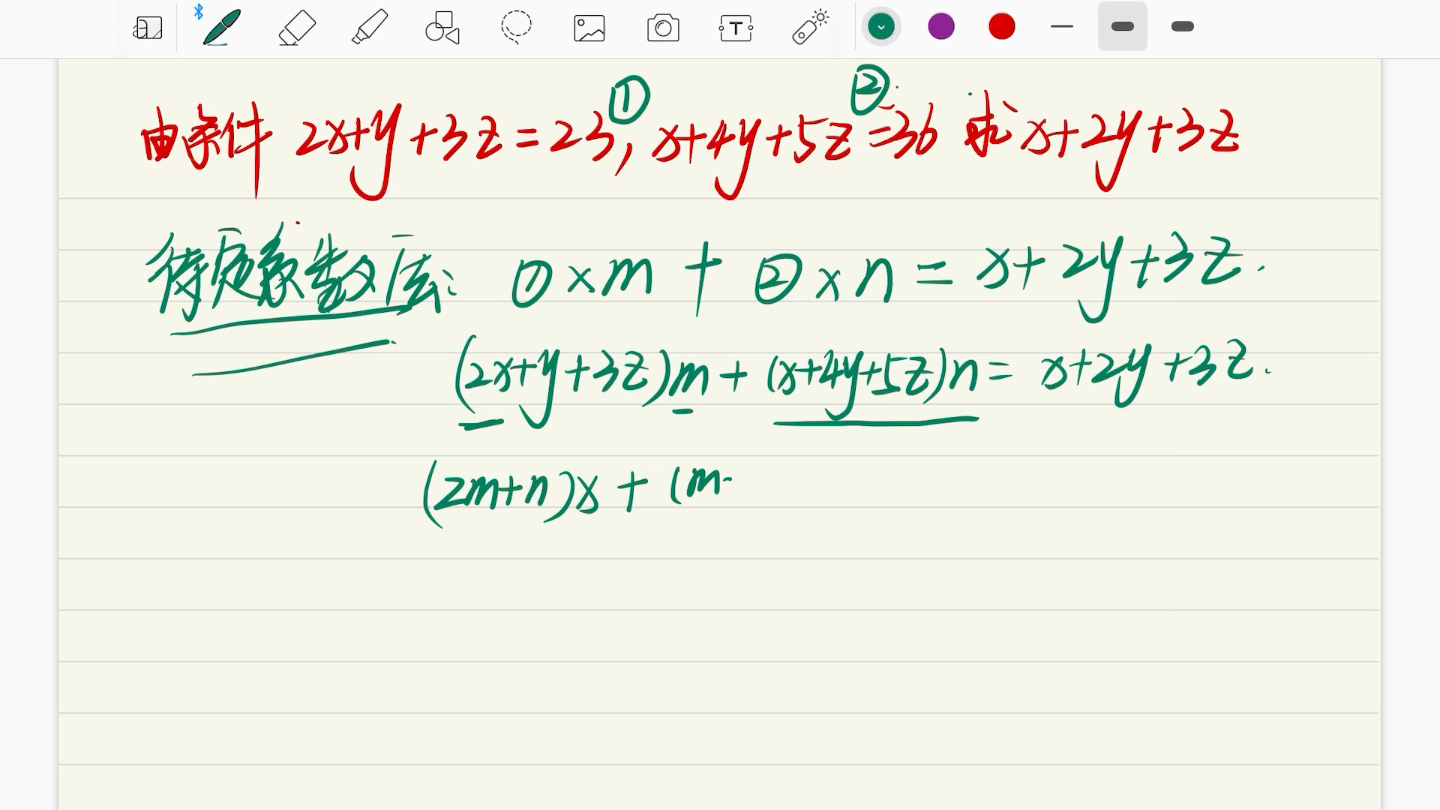 ① ②
由条件 2x+y+3z=23, x+4y+5z=36 求 x+2y+3z
待定系数法: ①×m + ②×n = x+2y+3z.
(2x+y+3z)m + (x+4y+5z)n = x+2y+3z.
(2m+n)x + (m-